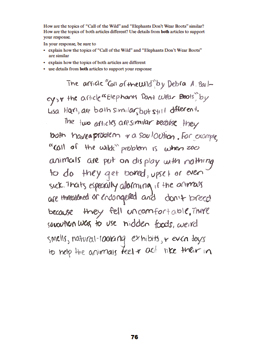 How are the topics of "Call of the Wild" and "Elephants Don't Wear Boots" similar?
How are the topics of both articles different? Use details from both articles to support
your response.
In your response, be sure to
• explain how the topics of "Call of the Wild" and "Elephants Don't Wear Boots"
are similar
• explain how the topics of both articles are different
• use details from both articles to support your response
The article "Call of the Wild" by Debra A Bail-
ey & the article "Elephants Dont Wear Boots" by
Lisa Hart, are both similar, but still different.
The two articles are similar because they
both have a problem & a souloution. For example
"Call of the Wilds" problem is when zoo
animals are put on display with nothing
to do they get bored, upset or even
sick. Thats especially alarming if the animals
are threatened or endangered and don't breed
because they fell uncomfortable. There
soloution was to use hidden foods, weird
smells, natural-looking exhibits, & even toys
to help the animals feel & act like their in
76